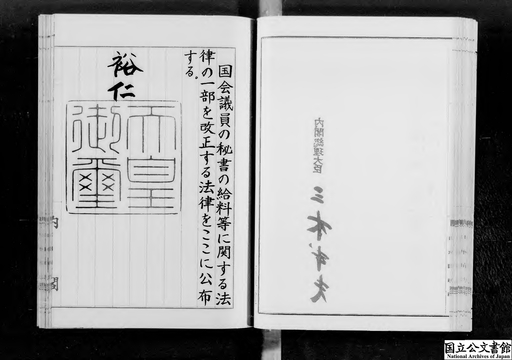 国会議員の秘書の給料等に関する法
律の一部を改正する法律をここに公布
する。
裕仁
天皇
御璽
内閣
内閣総理大臣 三木武夫
国立公文書館
National Archives of Japan